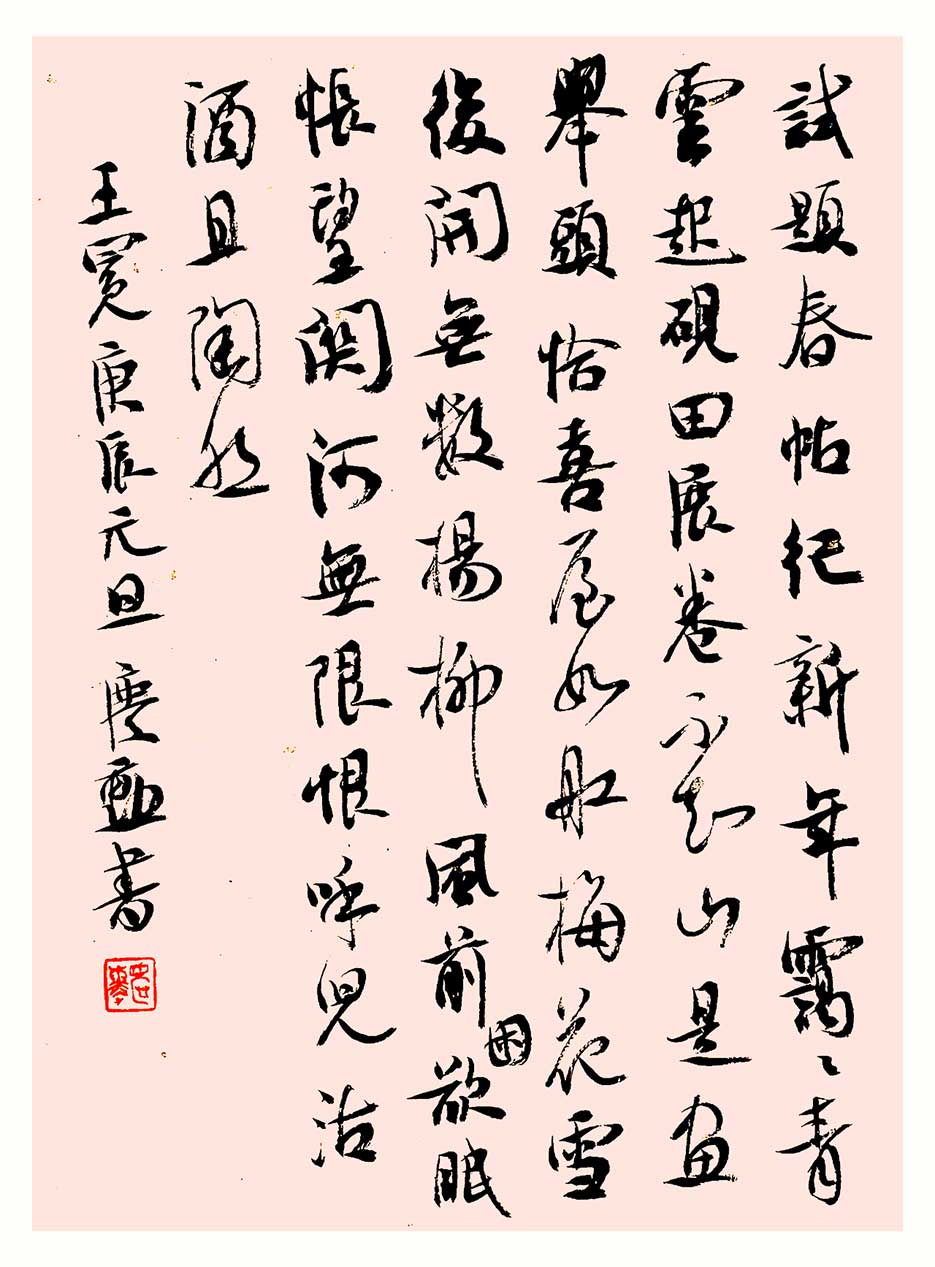 試題春帖紀新年靄〻青
雲起硯田展卷不知山是画
舉頭恰喜屋如船梅花雪
後開無數楊柳風前困欲眠
悵望關河無限恨呼兒沽
酒且陶然
王冕庚辰元旦 慶勳書